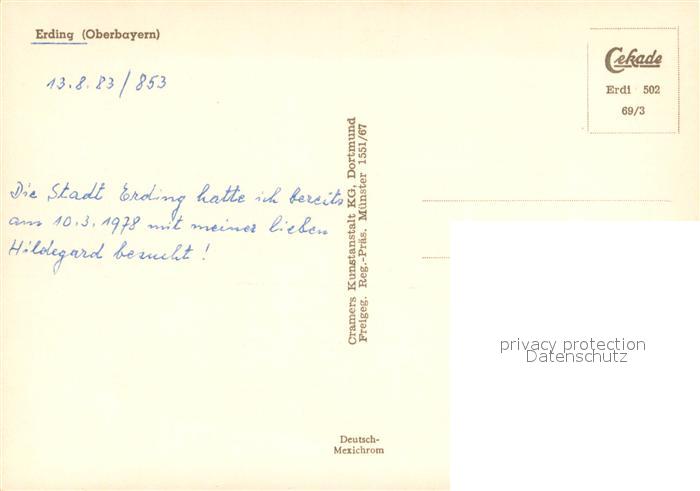 Erding (Oberbayern)
13.8.83/853
Die Stadt Erding hatte ich bereits
am 10.3.1978 mit meiner lieben
Hildegard besucht!
Cramers Kunstanstalt KG, Dortmund
Freigeg. Reg.-Präs. Münster 1551/67
Deutsch-
Mexichrom
Cekade
Erdi 502
69/3
privacy protection
Datenschutz